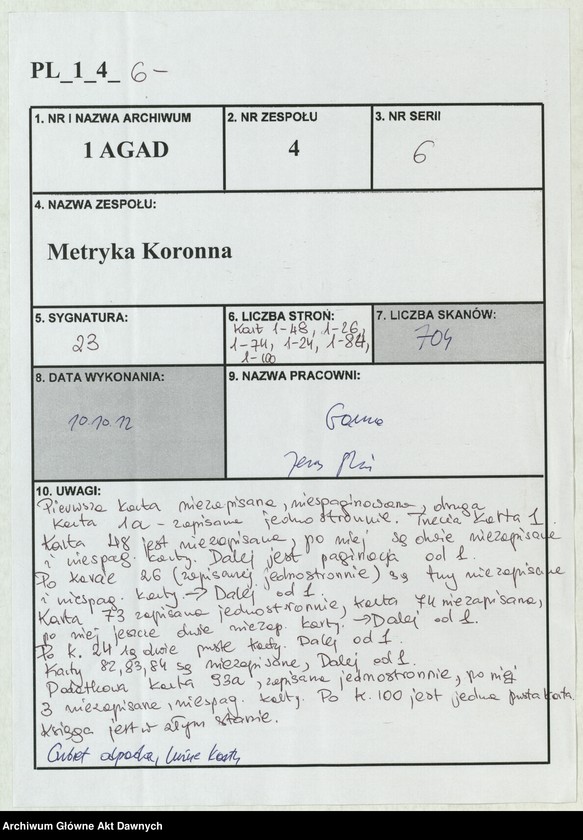 PL_1_4_ 6-
1. NR I NAZWA ARCHIWUM
1 AGAD
2. NR ZESPOŁU
4
3. NR SERII
6
4. NAZWA ZESPOŁU:
Metryka Koronna
5. SYGNATURA:
23
6. LICZBA STRON:
Kart 1-48, 1-26,
1-74, 1-24, 1-84,
1-100
7. LICZBA SKANÓW:
704
8. DATA WYKONANIA:
10.10.12
9. NAZWA PRACOWNI:
10. UWAGI:
Pierwsza karta niezapisana, niespaginowana, druga
karta 1a - zapisana jednostronnie. Trzecia karta 1.
Karta 48 jest niezapisana, po niej są dwie niezapisane
i niespag. karty. Dalej jest paginacja od 1.
Po karcie 26 (zapisanej jednostronnie) są trzy niezapisane
i niespag. karty. → Dalej od 1.
Karta 73 zapisana jednostronnie, karta 74 niezapisana,
po niej jeszcze dwie niezap. karty. → Dalej od 1.
Po k. 24 są dwie puste karty. Dalej od 1.
Karty 82, 83, 84 są niezapisane, Dalej od 1.
Dodatkowa karta 93a, zapisana jednostronnie, po niej
3 niezapisane, niespag. karty. Po k. 100 jest jedna pusta karta.
Księga jest w złym stanie.
karty
Archiwum Główne Akt Dawnych